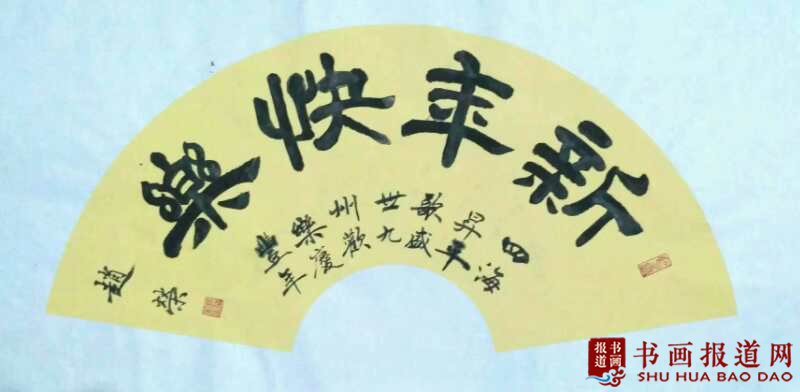 新年快樂
四海
昇平
歌盛
世九
州歡
樂慶
豐年
趙
书画
报道
书画报道网
SHU HUA BAO DAO